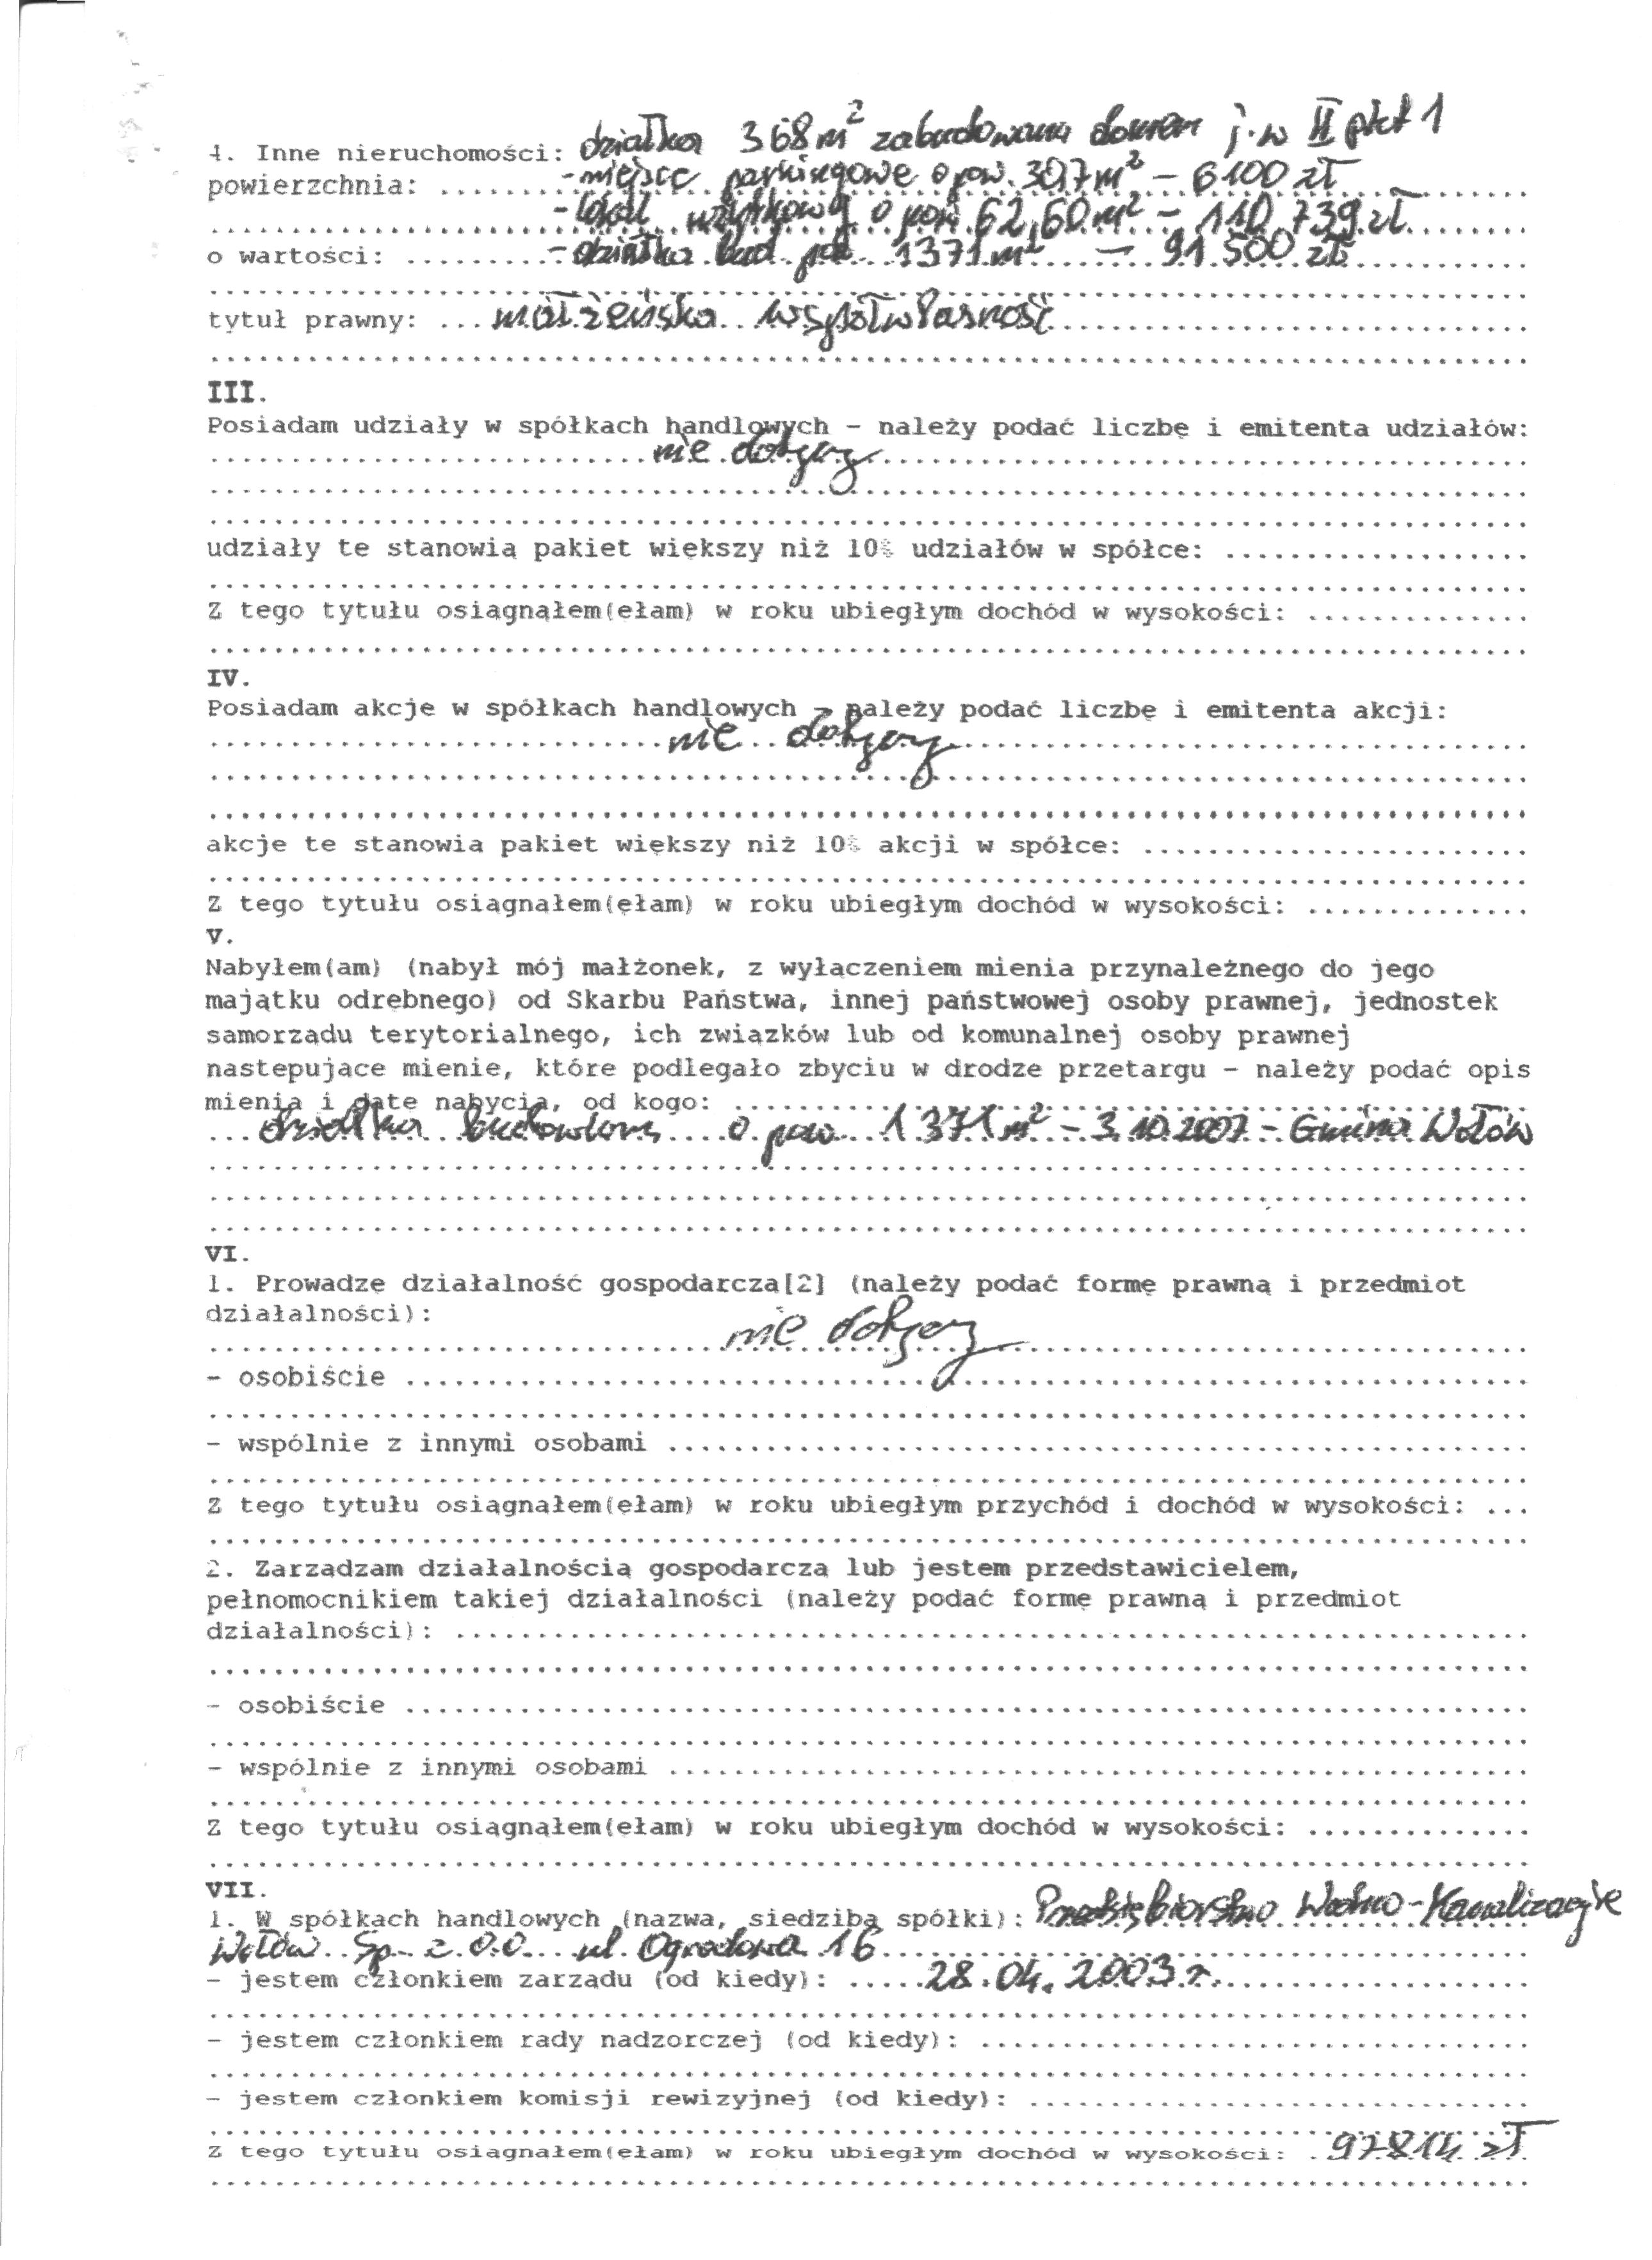 4. Inne nieruchomości: działka 368 m² zabudowana domem j.w II pkt 1
powierzchnia: ........ - miejsce parkingowe o pow. 30,7 m² - 6100 zł
- lokal użytkowy o pow. 62,60 m² - 110.739 zł
o wartości: ......... - działka bud. pow. 1371 m² - 91.500 zł
tytuł prawny: ... małżeńska współwłasność
III.
Posiadam udziały w spółkach handlowych - należy podać liczbę i emitenta udziałów:
nie dotyczy
udziały te stanowią pakiet większy niż 10% udziałów w spółce: ...................
Z tego tytułu osiągnąłem(ęłam) w roku ubiegłym dochód w wysokości: ..............
IV.
Posiadam akcje w spółkach handlowych - należy podać liczbę i emitenta akcji:
nie dotyczy
akcje te stanowią pakiet większy niż 10% akcji w spółce: ........................
Z tego tytułu osiągnąłem(ęłam) w roku ubiegłym dochód w wysokości: ..............
V.
Nabyłem(am) (nabył mój małżonek, z wyłączeniem mienia przynależnego do jego
majątku odrębnego) od Skarbu Państwa, innej państwowej osoby prawnej, jednostek
samorządu terytorialnego, ich związków lub od komunalnej osoby prawnej
następujące mienie, które podlegało zbyciu w drodze przetargu - należy podać opis
mienia i datę nabycia, od kogo: ..........
działka budowlana o pow. 1371 m² - 3.10.2007 - Gmina Wołów
VI.
1. Prowadzę działalność gospodarczą[2] (należy podać formę prawną i przedmiot
działalności):
nie dotyczy
- osobiście ..........
- wspólnie z innymi osobami ..........
Z tego tytułu osiągnąłem(ęłam) w roku ubiegłym przychód i dochód w wysokości: ...
2. Zarządzam działalnością gospodarczą lub jestem przedstawicielem,
pełnomocnikiem takiej działalności (należy podać formę prawną i przedmiot
działalności): ..........
- osobiście ..........
- wspólnie z innymi osobami ..........
Z tego tytułu osiągnąłem(ęłam) w roku ubiegłym dochód w wysokości: ..............
VII.
1. W spółkach handlowych (nazwa, siedziba spółki): Przedsiębiorstwo Wodno-Kanalizacyjne
Wołów Sp. z o.o. ul. Ogrodowa 16
- jestem członkiem zarządu (od kiedy): ..... 28.04.2003 r.
- jestem członkiem rady nadzorczej (od kiedy): ..........
- jestem członkiem komisji rewizyjnej (od kiedy): ..........
Z tego tytułu osiągnąłem(ęłam) w roku ubiegłym dochód w wysokości: . 97814 zł